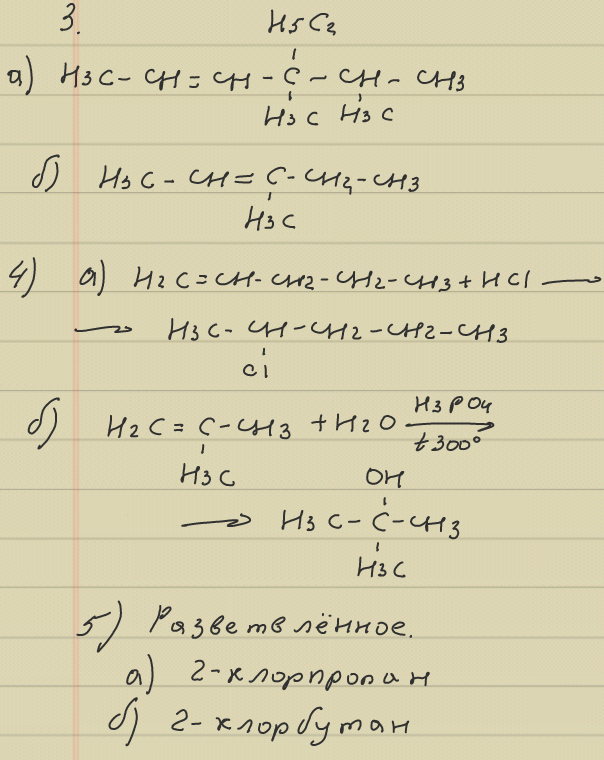 3.
H5C2
а) H3C - CH = CH - C - CH - CH3
H3C H3C
б) H3C - CH = C - CH2 - CH3
H3C
4) а) H2C = CH - CH2 - CH2 - CH3 + HCl →
→ H3C - CH - CH2 - CH2 - CH3
Cl
б) H2C = C - CH3 + H2O H3PO4
t 300°
H3C
OH
→ H3C - C - CH3
H3C
5) Разветвлённое.
а) 2-хлорпропан
б) 2-хлорбутан